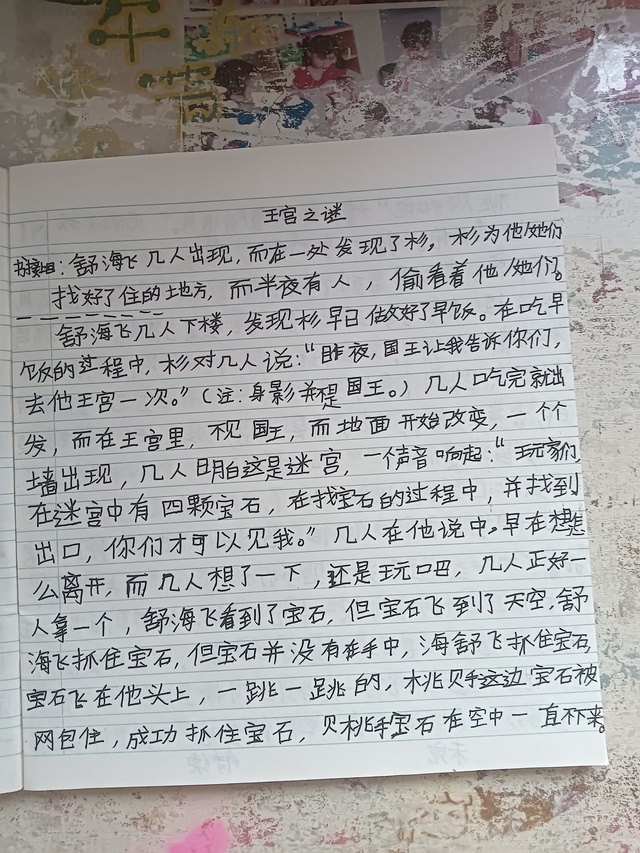 王宫之谜
书接上回：舒海飞几人出现，而在一处发现了杉，杉为他/她们
找好了住的地方，而半夜有人，偷看着他/她们。
舒海飞几人下楼，发现杉早已做好了早饭。在吃早
饭的过程中，杉对几人说：“昨夜，国王让我告诉你们，
去他王宫一次。”（注：身影并不是国王。）几人吃完就出
发，而在王宫里，不见国王，而地面开始改变，一个个
墙出现，几人明白这是迷宫，一个声音响起：“玩家们，
在迷宫中有四颗宝石，在找宝石的过程中，并找到
出口，你们才可以见我。”几人在他说中，早在想怎
么离开，而几人想了一下，还是玩吧，几人正好一
人拿一个，舒海飞看到了宝石，但宝石飞到了天空，舒
海飞抓住宝石，但宝石并没有在手中，海舒飞抓住宝石，
宝石飞在他头上，一跳一跳的，桃贝手这边宝石被
网包住，成功抓住宝石，贝桃手宝石在空中一直不下来。